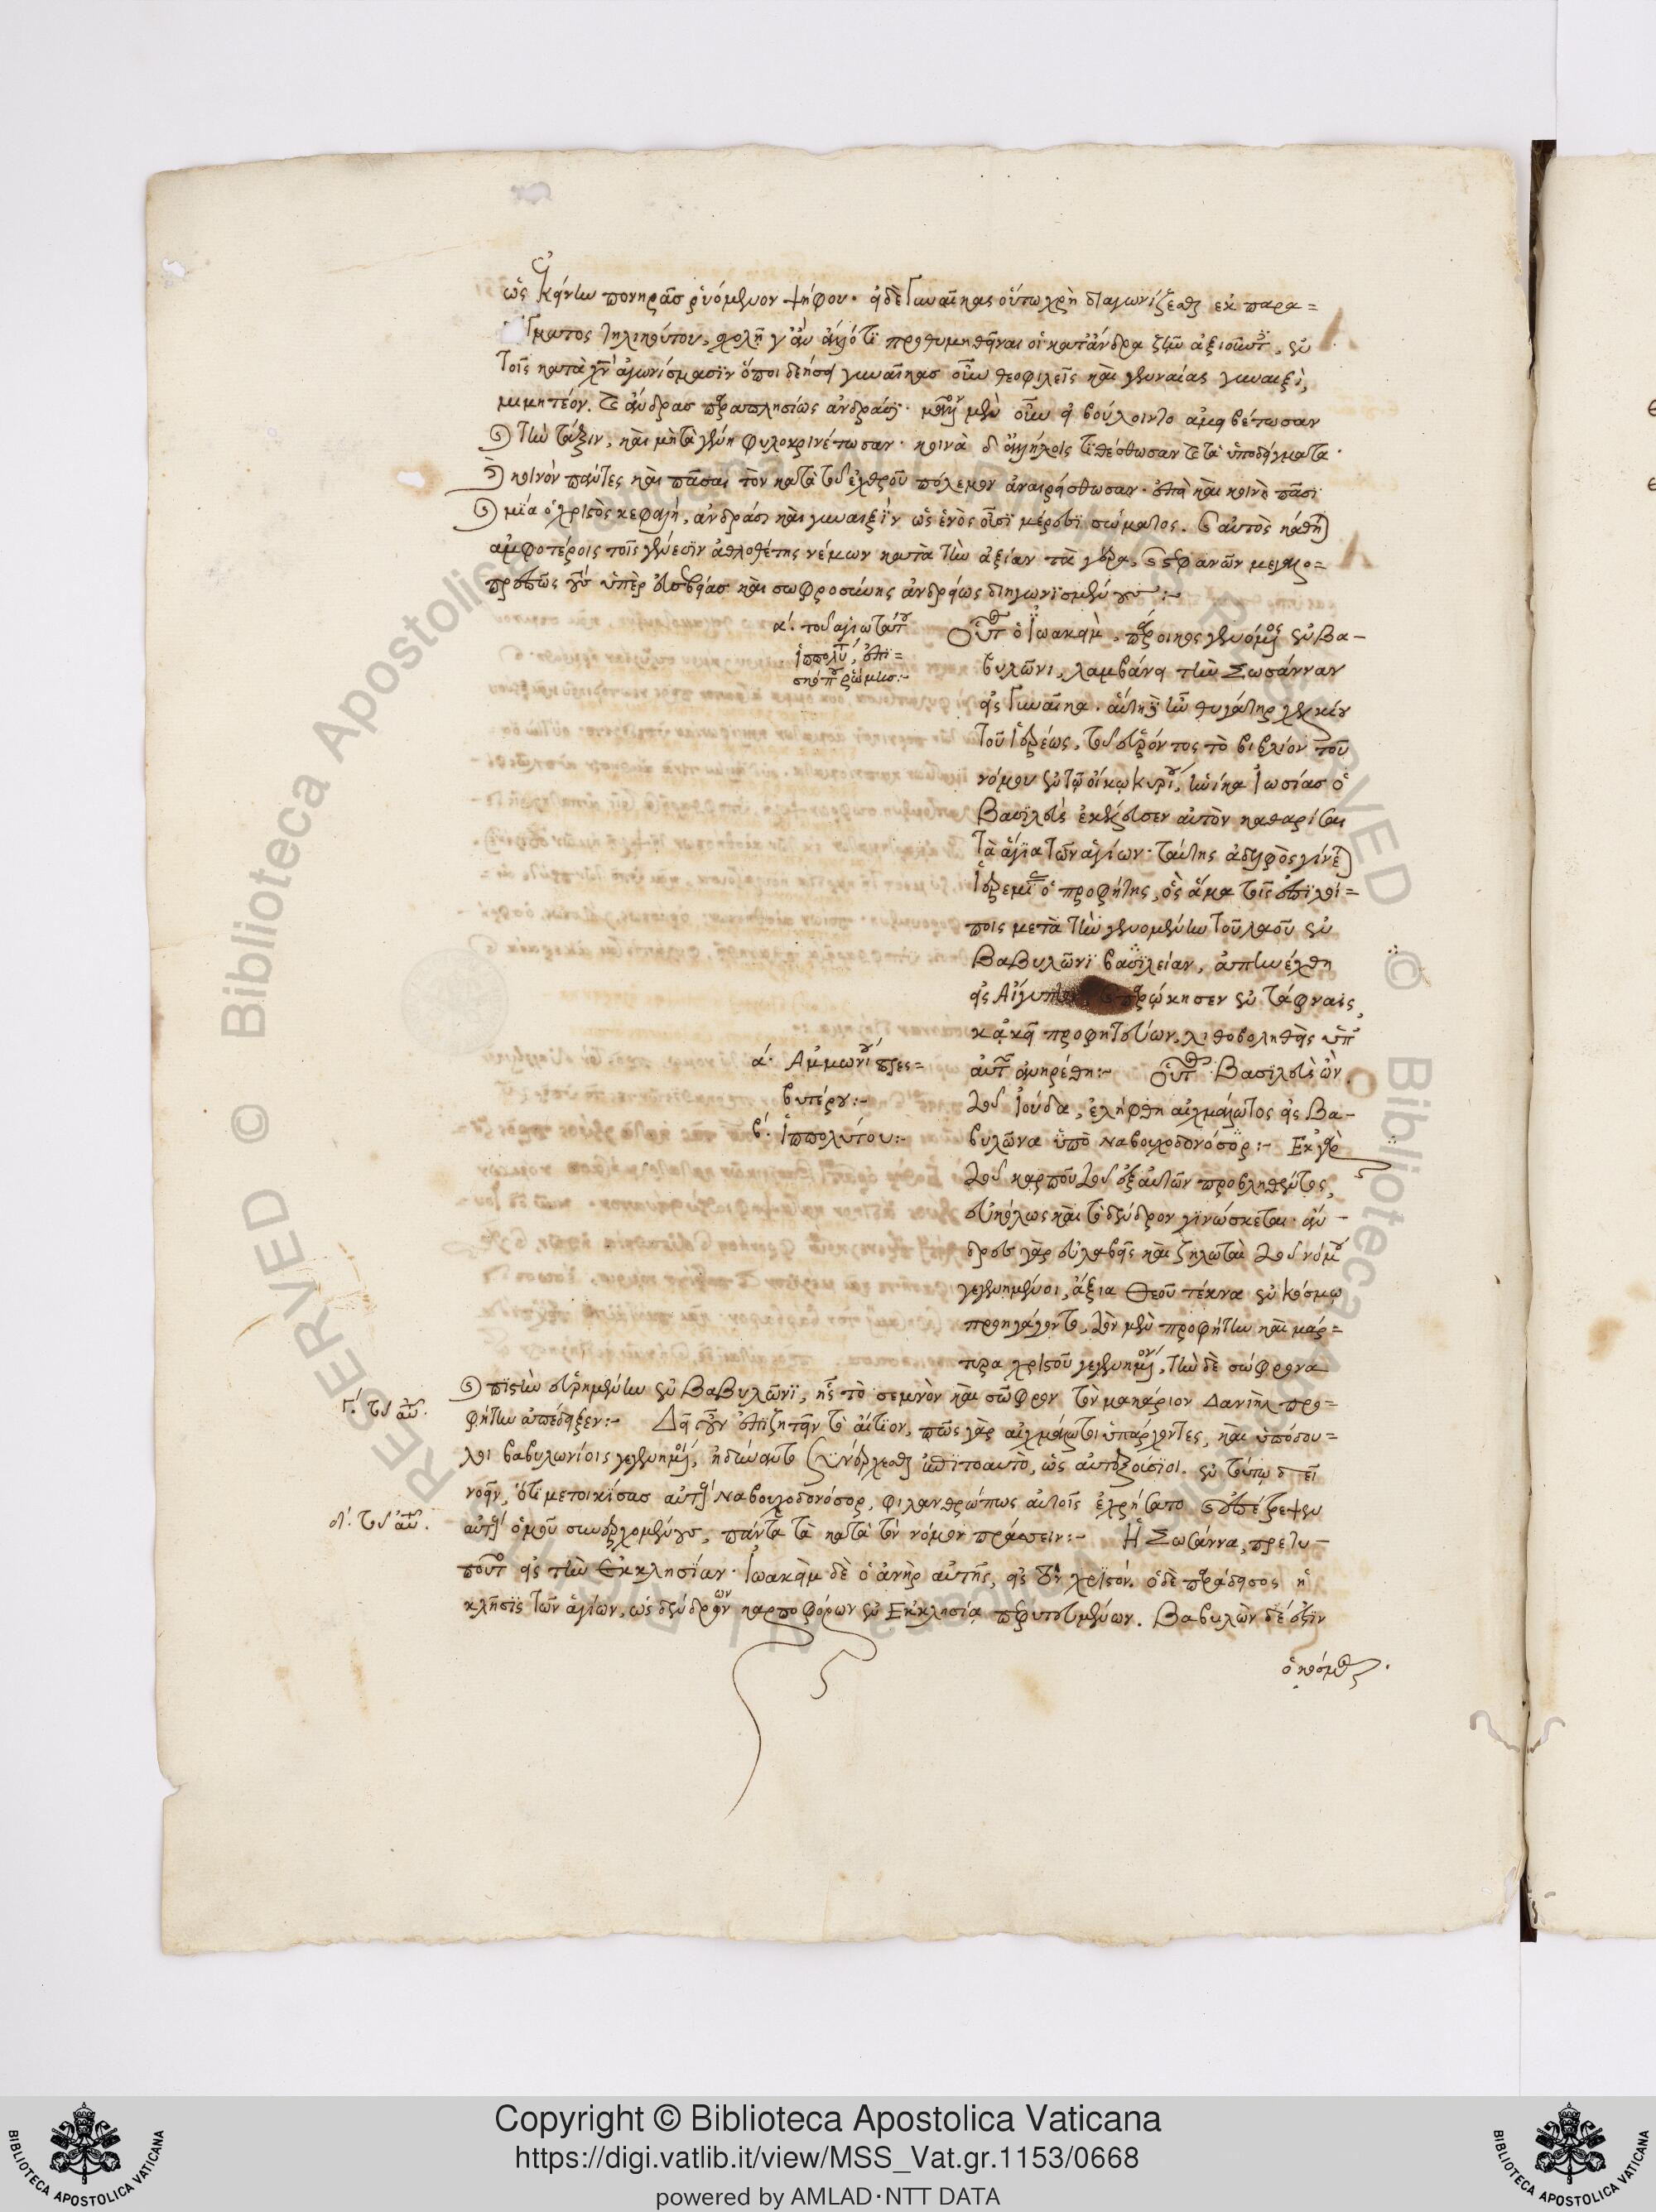 ὡς κἀκείνων πονηρᾶς ῥυόμενον ψήφου. ἀεὶ δὲ γυναῖκας οὕτω χρὴ διαγωνίζεσθαι ἐκ παρα=
δείγματος τηλικούτου, προθυμηθῆναι οἱ κατ' ἄνδρα ζῆν ἀξιοῦντες, ἐν
τοῖς κατὰ ἀγωνίσμασιν ὅποι δεήσει γυναῖκας οὖν θεοφιλεῖς καὶ γενναίας γυναιξὶ
μιμητέον. καὶ ἄνδρας παραπλησίως ἀνδράσι. μὲν οὖν εἰ βούλοιντο ἀμειβέτωσαν
τὴν τάξιν, καὶ μὴ τὰ γένη φυλοκρινέτωσαν. κοινὰ δ' ἀλλήλοις τιθέσθωσαν καὶ τὰ ὑποδείγματα.
κοινὸν πάντες καὶ πᾶσαι τὸν κατὰ τοῦ ἐχθροῦ πόλεμον ἀναιρείσθωσαν. ἐπεὶ καὶ κοινὴ πᾶσι
καὶ μία ὁ χριστὸς κεφαλὴ, ἀνδράσι καὶ γυναιξὶν ὡς ἑνὸς οὖσι μέρεσι σώματος. καὶ αὐτὸς κάθηται
ἀμφοτέροις τοῖς γένεσιν ἀθλοθέτης νέμων κατὰ τὴν ἀξίαν τὰ γέρα, καὶ στεφανῶν μεγαλο=
πρεπῶς τοὺς ὑπὲρ εὐσεβείας καὶ σωφροσύνης ἀνδρείως διηγωνισμένους:~
α΄. τοῦ ἁγιωτάτου
Ἱππολύτου, ἐπι=
σκόπου ῥώμης:~
Οὗτος ὁ Ἰωακεὶμ, πάροικος γενόμενος ἐν Βα-
βυλῶνι, λαμβάνει τὴν Σωσάνναν
εἰς γυναῖκα. αὕτη δὲ ἦν θυγάτηρ χελκίου
τοῦ ἱερέως, τοῦ εὑρόντος τὸ βιβλίον τοῦ
νόμου ἐν τῷ οἴκῳ κυρίου, ἡνίκα Ἰωσίας ὁ
Βασιλεὺς ἐκέλευσεν αὐτὸν καθαρίσαι
τὰ ἅγια τῶν ἁγίων. ταύτης ἀδελφὸς γίνεται
Ἱερεμίας ὁ προφήτης, ὃς ἅμα τοῖς ἐπιλοί=
ποις μετὰ τὴν γενομένην τοῦ λαοῦ ἐν
Βαβυλῶνι βασιλείαν, ἀπηνέχθη
εἰς Αἴγυπτον καὶ παρῴκησεν ἐν τάφναις,
κἀκεῖ προφητεύων, λιθοβοληθεὶς ὑπ'
αὐτῶν ἀνῃρέθη:~ Οὗτος Βασιλεὺς ὢν
τοῦ Ἰούδα, ἐλήφθη αἰχμάλωτος εἰς Βα-
βυλῶνα ὑπὸ ναβουχοδονόσορ:~ Ἐκ γὰρ
α΄. Ἀμμωνίου πρες=
βυτέρου:~
β΄. Ἱππολύτου:~
τοῦ καρποῦ τοῦ ἐξ αὐτῶν προβληθέντος,
εὐκόλως καὶ τὸ δένδρον γινώσκεται. ἄν-
δρες γὰρ εὐλαβεῖς καὶ ζηλωταὶ τοῦ νόμου
γεγενημένοι, ἄξια Θεοῦ τέκνα ἐν κόσμῳ
προηγάγοντο, τὸν μὲν προφήτην καὶ μάρ=
τυρα χριστοῦ γεγενημένον, τὴν δὲ σώφρονα
καὶ πιστὴν εὑρημένην ἐν Βαβυλῶνι, ἧς τὸ σεμνὸν καὶ σῶφρον τὸν μακάριον Δανιὴλ προ=
γ΄. τοῦ αὐτοῦ.
φήτην ἀπέδειξεν:~ Δεῖ οὖν ἐπιζητεῖν τὸ αἴτιον, πῶς γὰρ αἰχμάλωτοι ὑπάρχοντες, καὶ ὑπόδου=
λοι βαβυλωνίοις γεγενημένοι, ἠδύναντο συνέρχεσθαι ἐπιτοαυτὸ, ὡς αὐτεξούσιοι. ἐν τούτῳ δ' ἔστι
νοεῖν, ὅτι μετοικίσας αὐτοὺς Ναβουχοδονόσορ, φιλανθρώπως αὐτοῖς ἐχρήσατο καὶ ἐπέτρεψεν
δ΄. τοῦ αὐτοῦ.
αὐτοὺς ὁμοῦ συνερχομένους, πάντα τὰ κατὰ τὸν νόμον πράσσειν:~ Ἡ Σωσάννα, προετυ-
ποῦτο εἰς τὴν Ἐκκλησίαν. Ἰωακεὶμ δὲ ὁ ἀνὴρ αὐτῆς, εἰς τὸν χριστόν. ὁ δὲ παράδεισος ἡ
κλῆσις τῶν ἁγίων, ὡς δένδρων καρποφόρων ἐν Ἐκκλησίᾳ πεφυτευμένων. Βαβυλὼν δέ ἐστιν
ὁ κόσμος.
© Biblioteca Apostolica Vaticana
Copyright © Biblioteca Apostolica Vaticana
https://digi.vatlib.it/view/MSS_Vat.gr.1153/0668
powered by AMLAD·NTT DATA
BIBLIOTECA APOSTOLICA VATICANA
BIBLIOTECA APOSTOLICA VATICANA